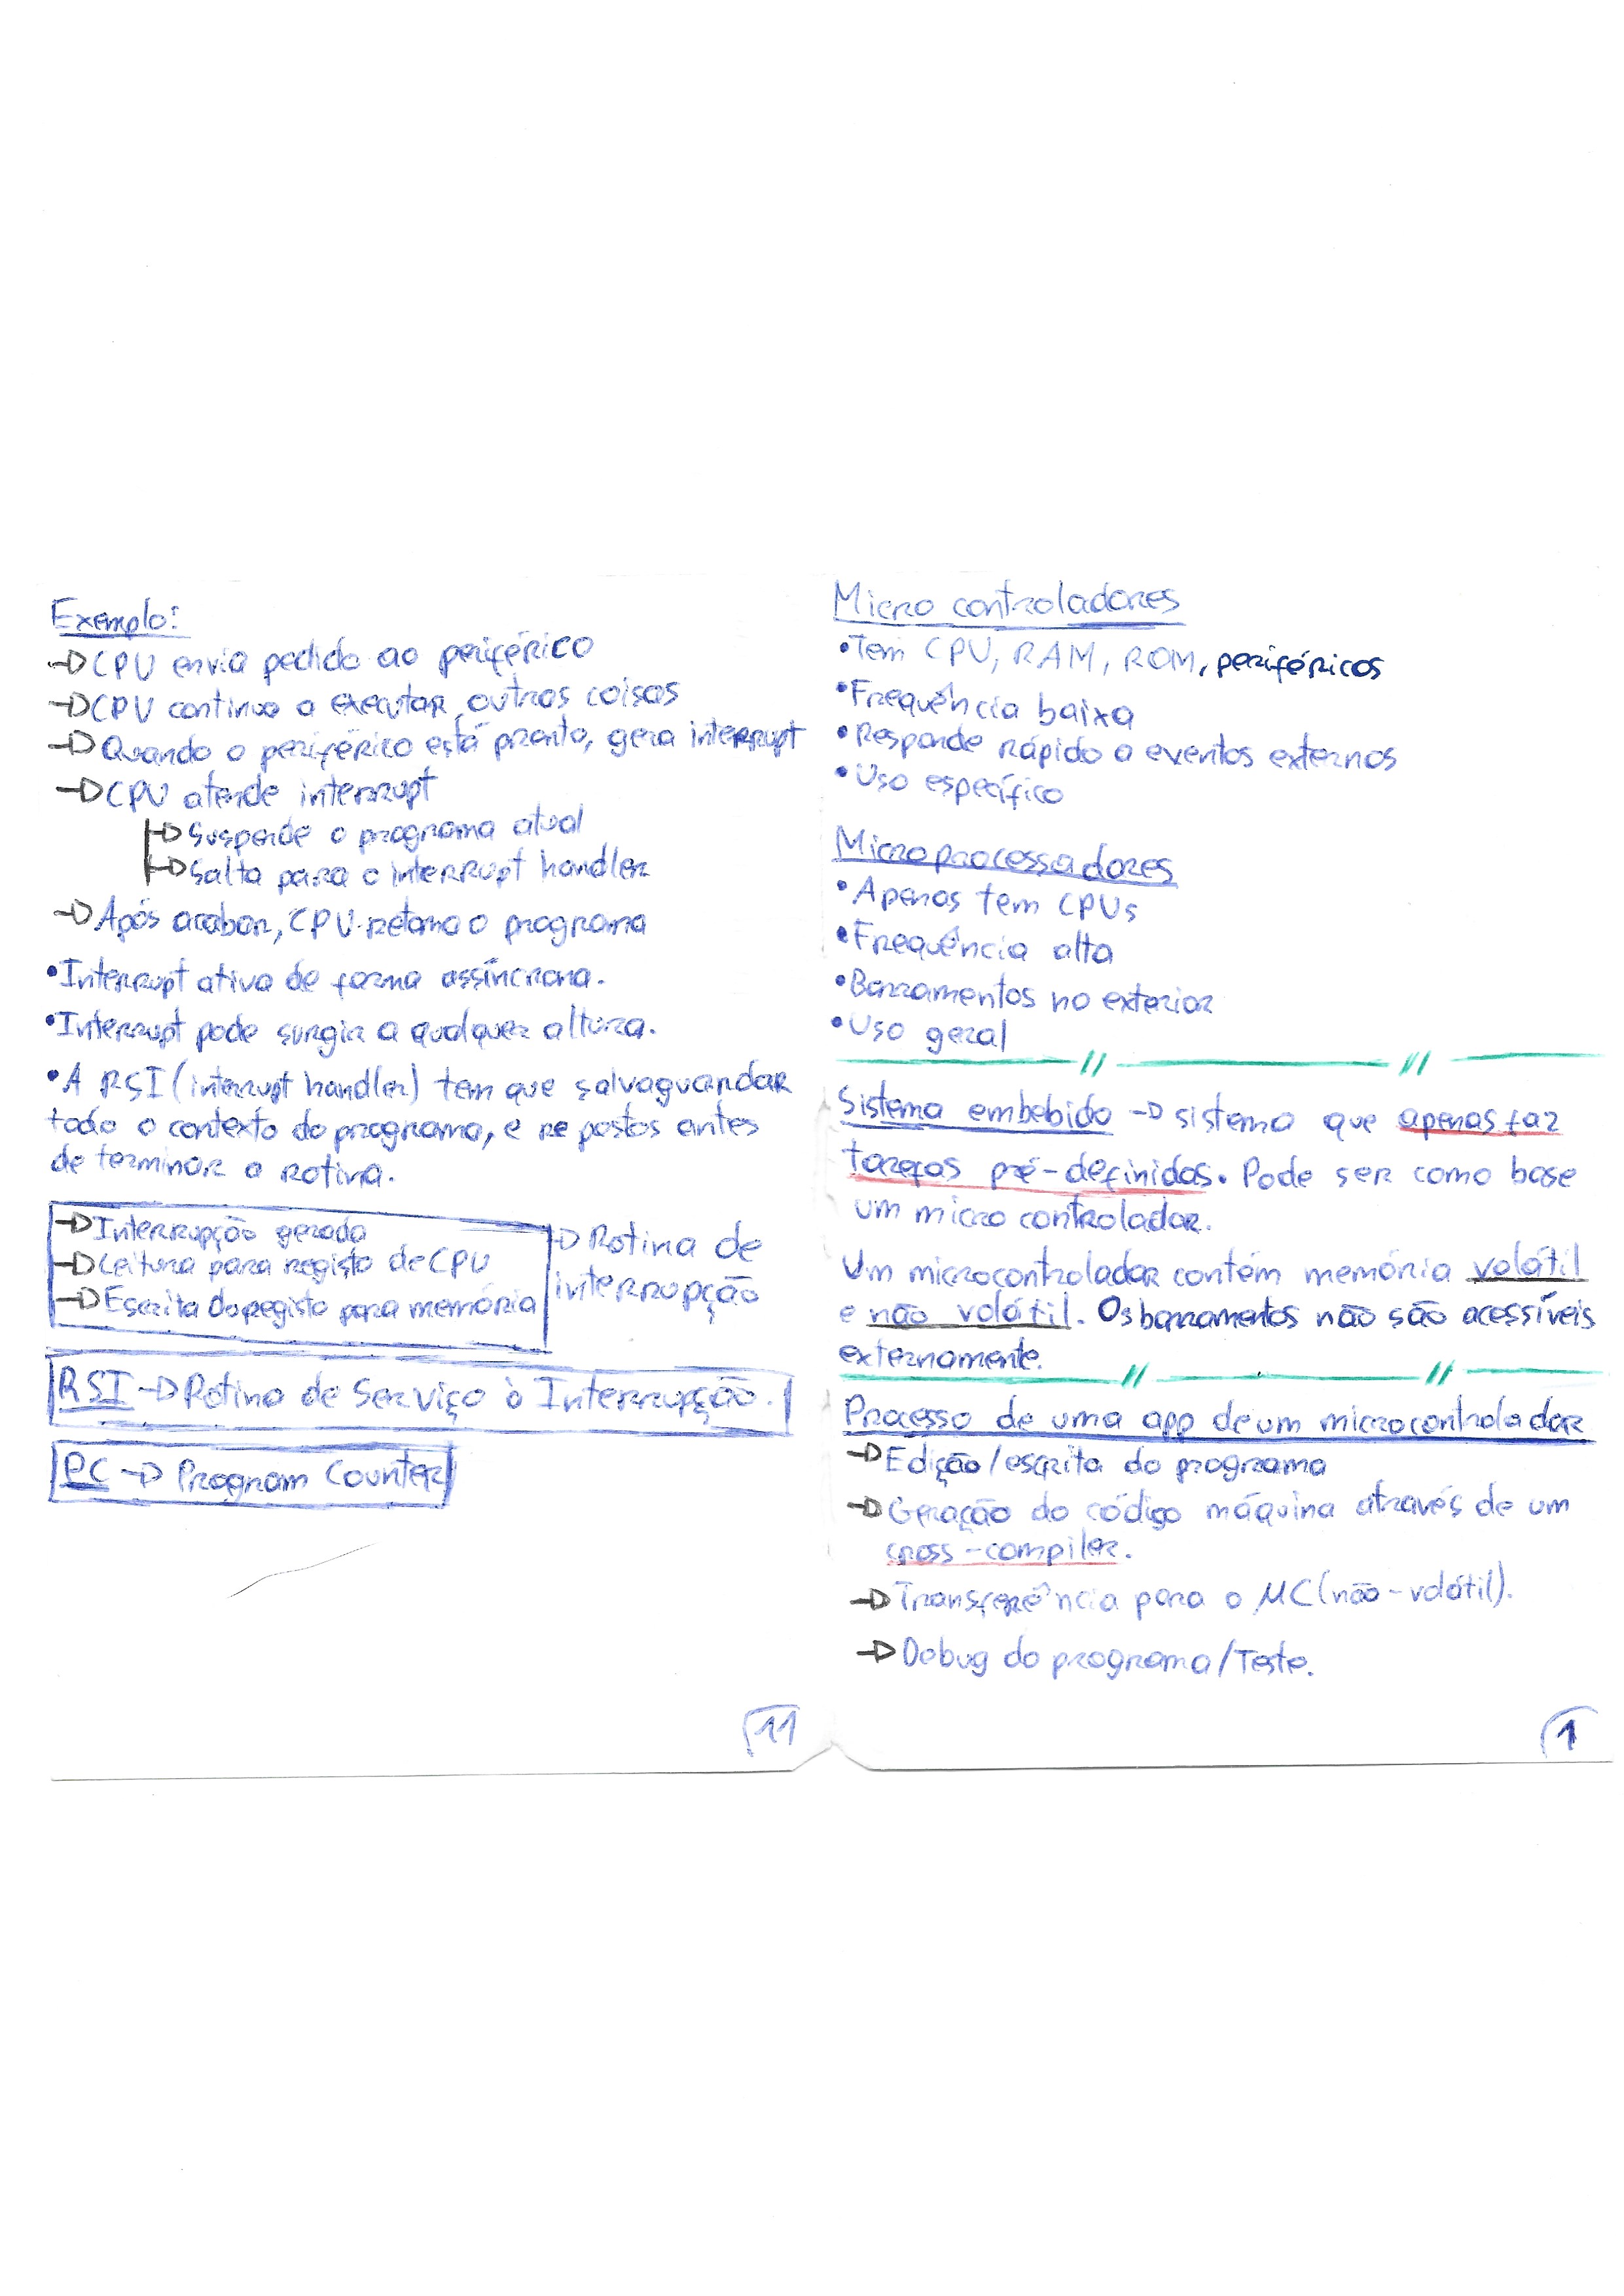 Exemplo:
→ CPU envia pedido ao periférico
→ CPU continua a executar outras coisas
→ Quando o periférico está pronto, gera interrupt
→ CPU atende interrupt
→ Suspende o programa atual
→ Salta para o interrupt handler
→ Após acabar, CPU retoma o programa
• Interrupt ativa de forma assíncrona.
• Interrupt pode surgir a qualquer altura.
• A RSI (interrupt handler) tem que salvaguardar
todo o contexto do programa, e repostos antes
de terminar a rotina.
→ Interrupção gerada
→ Leitura para registo de CPU
→ Escrita do registo para memória
→ Rotina de
interrupção
RSI → Rotina de Serviço à Interrupção.
PC → Program Counter
11
Micro controladores
• Tem CPU, RAM, ROM, periféricos
• Frequência baixa
• Responde rápido a eventos externos
• Uso específico
Microprocessadores
• Apenas tem CPUs
• Frequência alta
• Barramentos no exterior
• Uso geral
Sistema embebido → sistema que apenas faz
tarefas pré-definidas. Pode ser como base
um micro controlador.
Um microcontrolador contém memória volátil
e não volátil. Os barramentos não são acessíveis
externamente.
Processo de uma app de um microcontrolador
→ Edição/escrita do programa
→ Geração do código máquina através de um
cross-compiler.
→ Transferência para o µC (não-volátil).
→ Debug do programa/Teste.
1